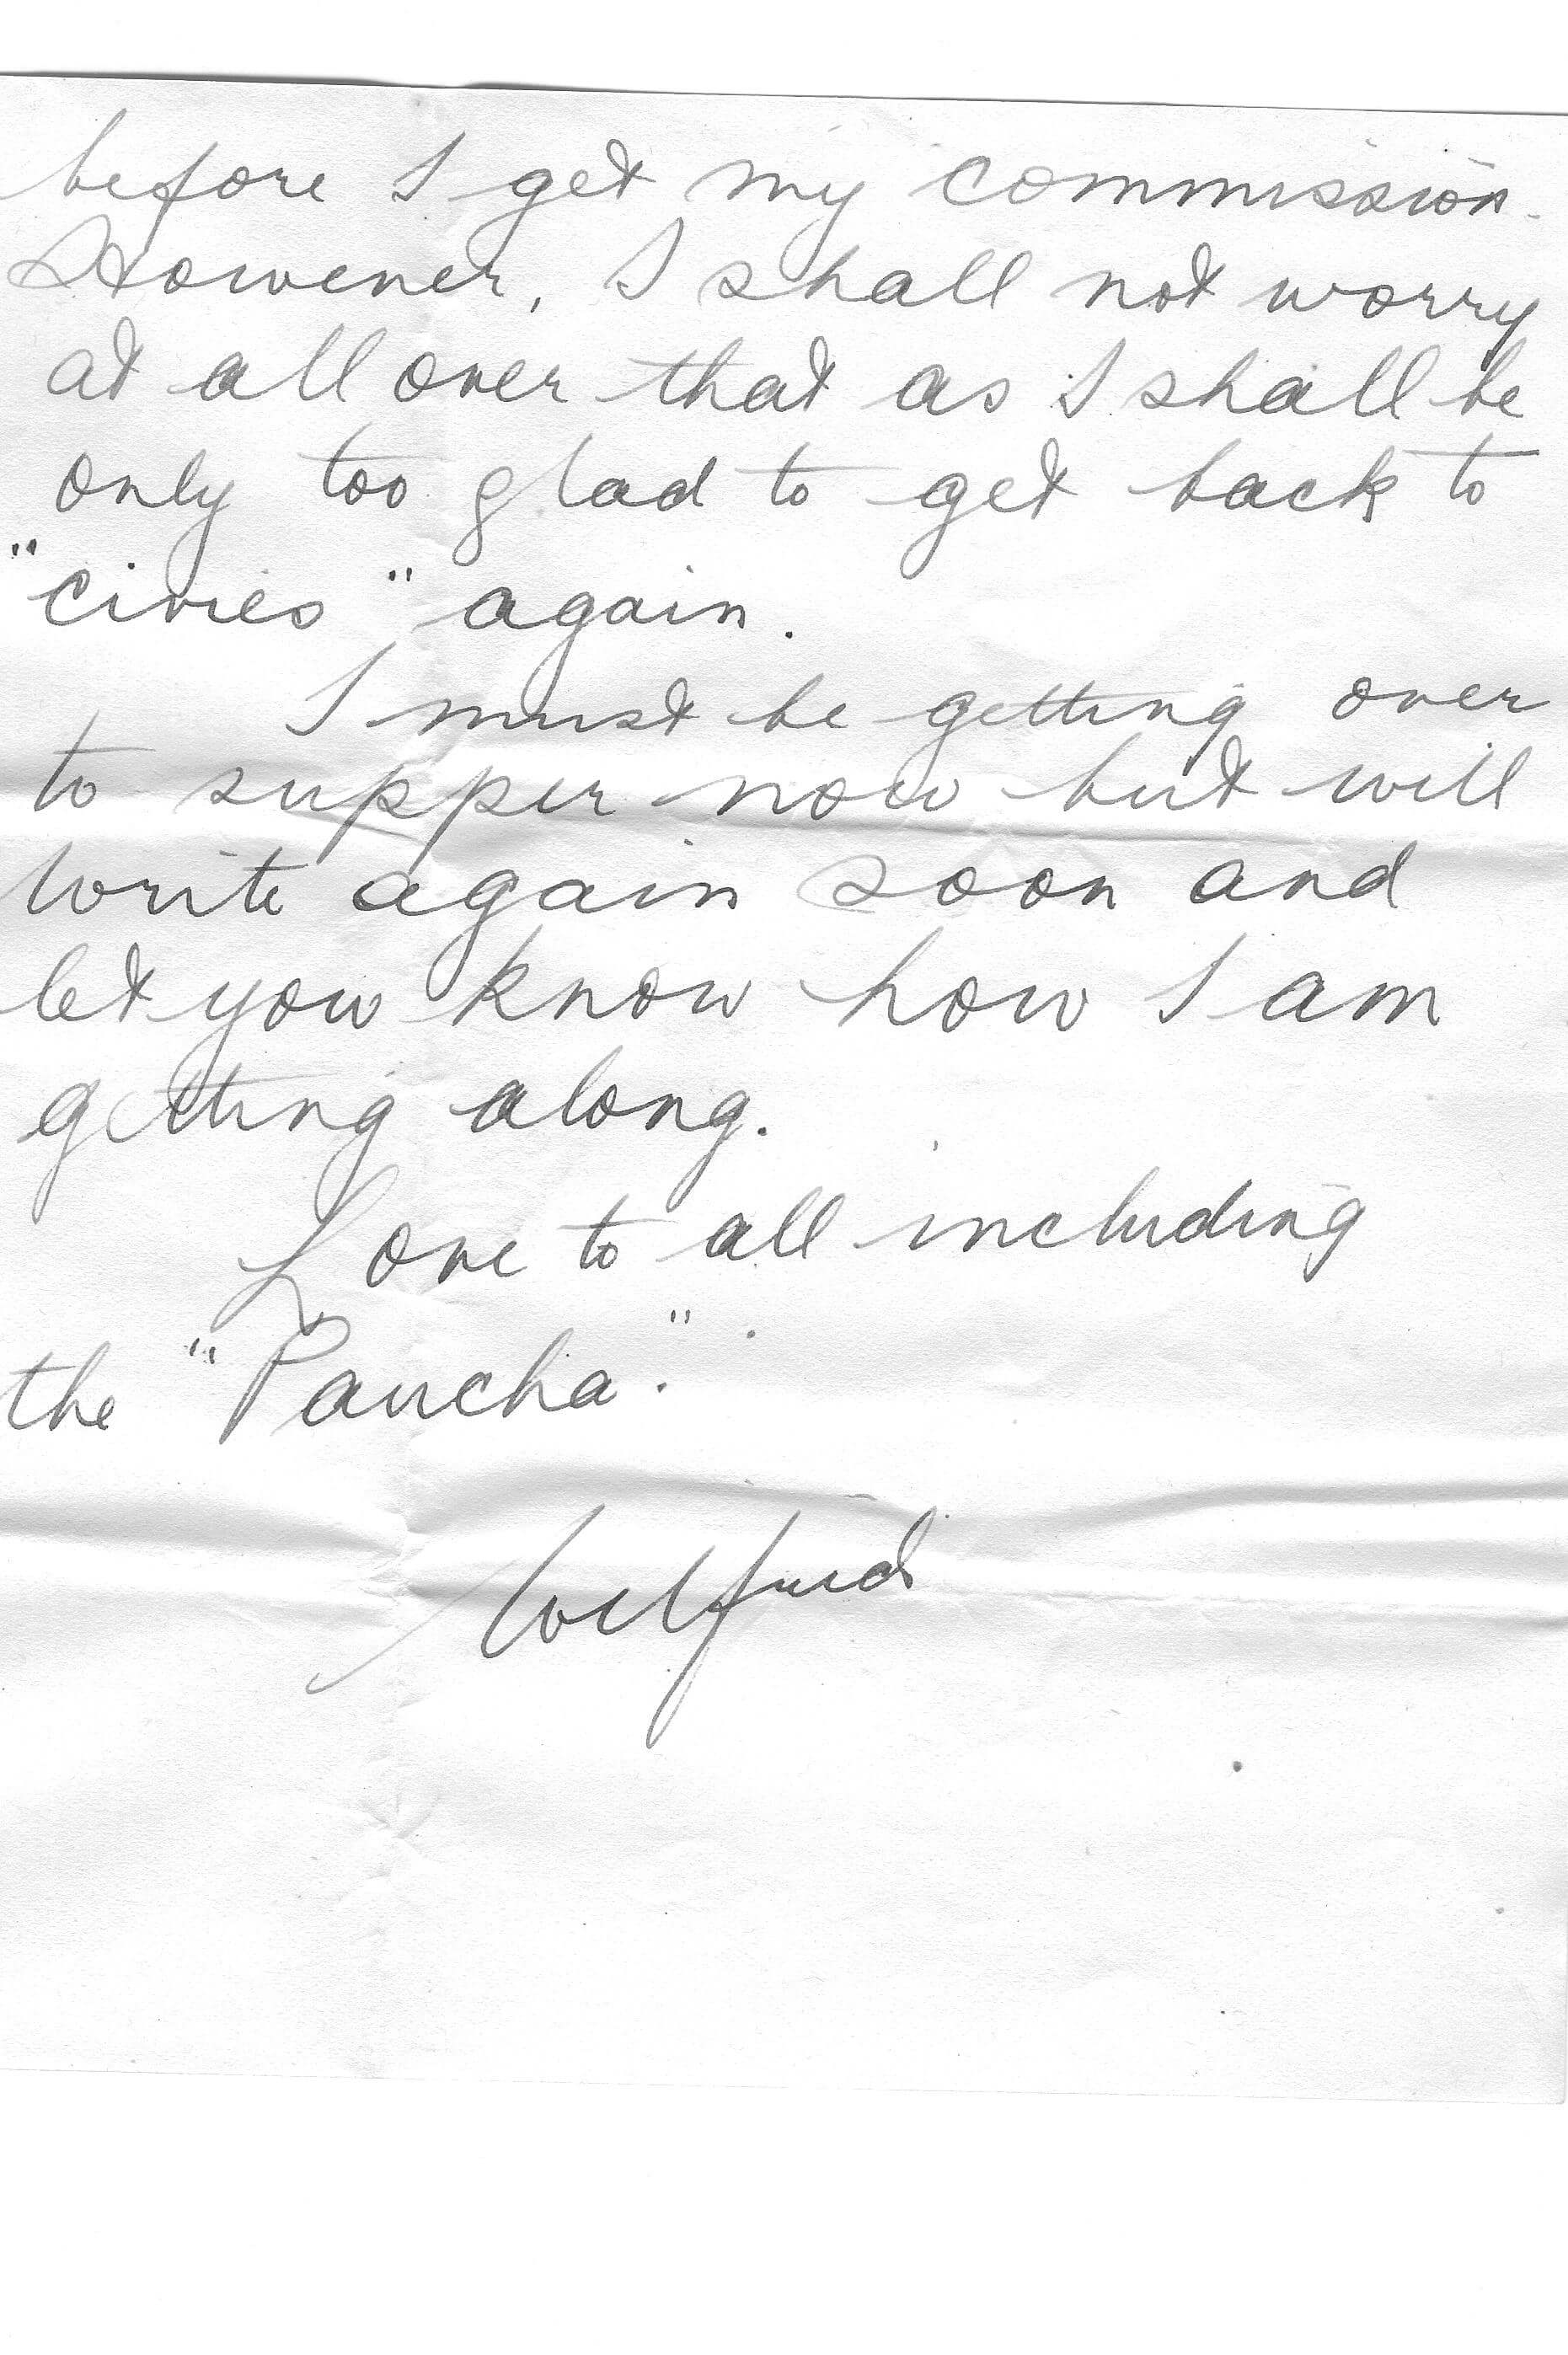 before I get my commission.
However, I shall not worry
at all over that as I shall be
only too glad to get back to
"civies" again.
I must be getting over
to supper now but will
write again soon and
let you know how I am
getting along.
Love to all including
the "Paucha."
Wilfrid